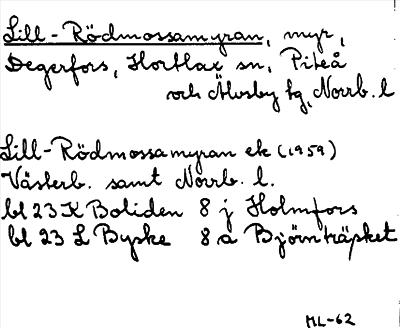 Lill-Rödmossamyran, myr,
Degerfors, Hortlax sn, Piteå
och Älvsby tg, Norrb. l
Lill-Rödmossamyran ek (1959)
Västerb. samt Norrb. l.
bl 23 K Boliden 8 j Holmfors
bl 23 L Byske 8 a Björnträsket
ML-62